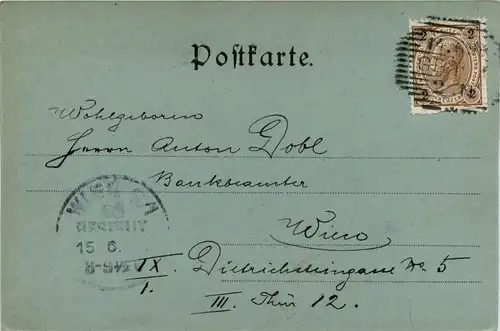 Postkarte.
2 2
2 2
Wohlgeboren
Herrn Anton Dobl
Bankbeamter
Wien
IX. Dietrichsteingasse No 5
I.
III. Thür 12.
BESTELLT
15 6.